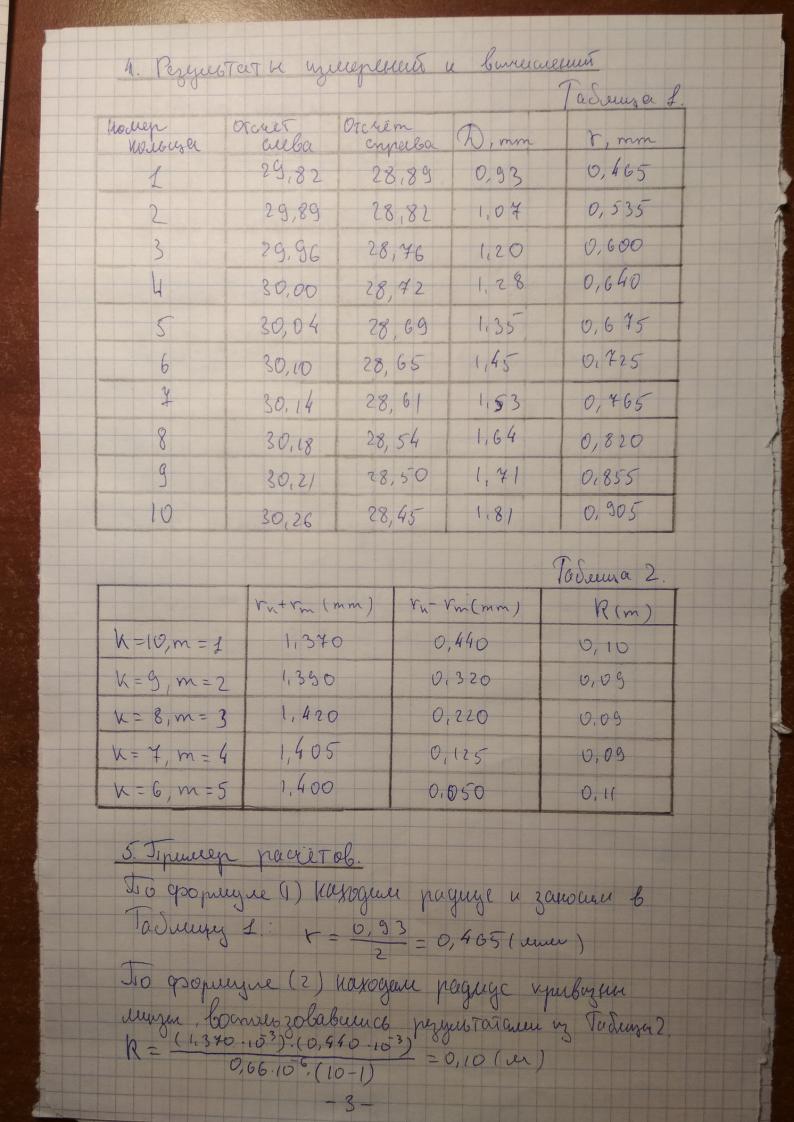 4. Результаты измерений и вычислений
Таблица 1.
номер кольца | Отсчёт слева | Отсчёт справа | D, mm | r, mm
1 | 29,82 | 28,89 | 0,93 | 0,465
2 | 29,89 | 28,82 | 1,07 | 0,535
3 | 29,96 | 28,76 | 1,20 | 0,600
4 | 30,00 | 28,72 | 1,28 | 0,640
5 | 30,04 | 28,69 | 1,35 | 0,675
6 | 30,10 | 28,65 | 1,45 | 0,725
7 | 30,14 | 28,61 | 1,53 | 0,765
8 | 30,18 | 28,54 | 1,64 | 0,820
9 | 30,21 | 28,50 | 1,71 | 0,855
10 | 30,26 | 28,45 | 1,81 | 0,905
Таблица 2.
rк+rm (mm) | rк-rm (mm) | R(m)
к=10, m=1 | 1,370 | 0,440 | 0,10
к=9, m=2 | 1,390 | 0,320 | 0,09
к=8, m=3 | 1,420 | 0,220 | 0,09
к=7, m=4 | 1,405 | 0,125 | 0,09
к=6, m=5 | 1,400 | 0,050 | 0,11
5. Пример расчётов.
По формуле (1) находим радиус и заносим в
Таблицу 1: r = 0,93 / 2 = 0,465 (мм)
По формуле (2) находим радиус кривизны
линзы, воспользовавшись результатами из Таблица 2.
R = (1,370·10⁻³)·(0,440·10⁻³) / 0,66·10⁻⁶·(10-1) = 0,10 (м)
-3-